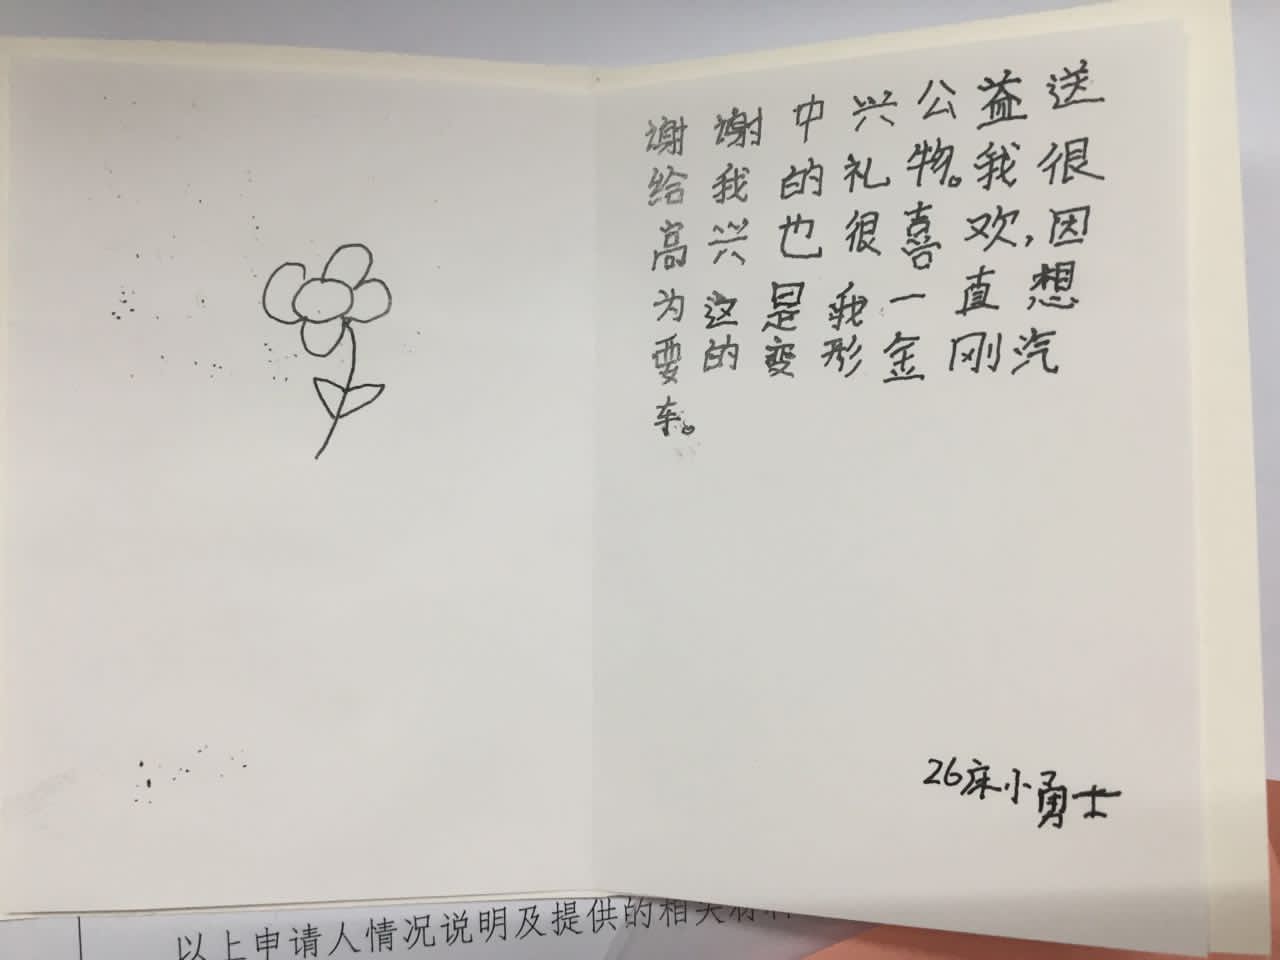 谢谢中兴公益送
给我的礼物。我很
高兴也很喜欢,因
为这是我一直想
要的变形金刚汽
车。
26床小勇士
以上申请人情况说明及提供的相关材料